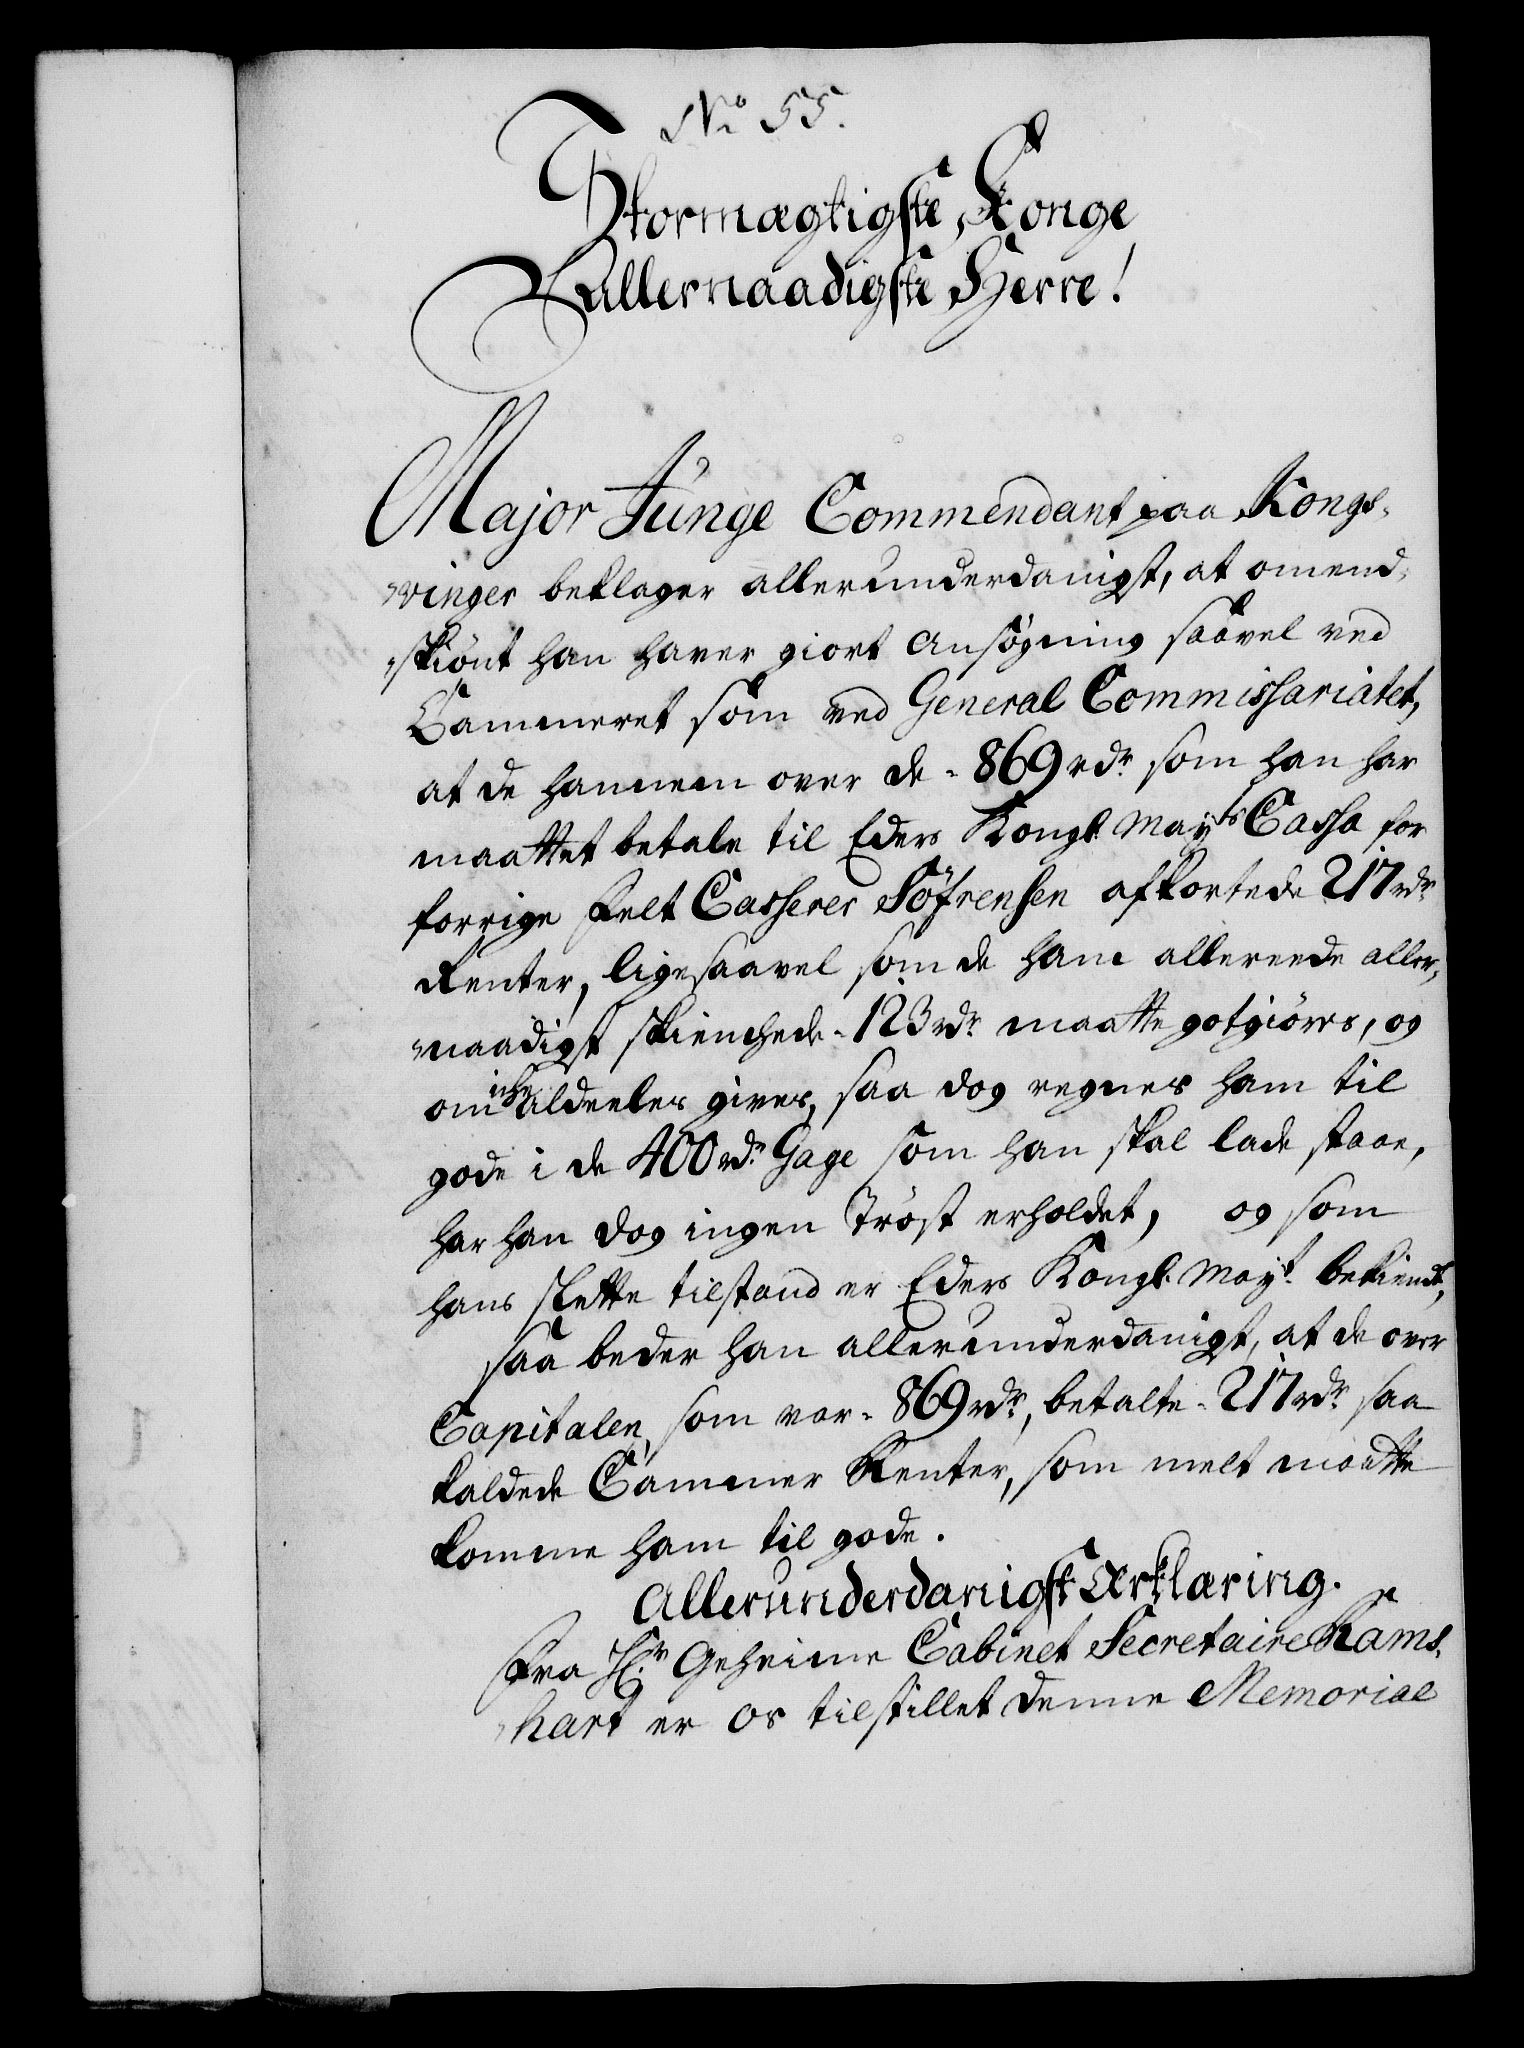 No 55.
Stormægtigste Konge
Allernaadigste Herre!
Major Junge Commendant paa Kongs-
vinger beklager allerunderdanigst, at omend-
skiönt han haver giort Ansögning saavel ved
Cammeret som ved General Commissariatet,
at de hannem over de - 869 rdr som han har
maattet betale til Eders Kongl. Mayts Cassa for
forrige Felt Casserer Söfrensen afkortede 217 rdr
Renter, ligesaavel som de ham allereede aller-
naadigst skienchede - 123 rdr maatte gotgiöres, og
om iche aldeeles gives, saa dog regnes ham til
gode i de 400 rdr Gage som han skal lade staae,
har han dog ingen Tröst erholdet, og som
hans slette tilstand er Eders Kongl. Mayt. bekiendt,
saa beder han allerunderdanigst, at de over
Capitalen, som var - 869 rdr, betalte - 217 rdr saa
kaldede Cammer Renter, som melt maatte
komme ham til gode.
Allerunderdanigst Erklæring.
Fra Hr. Geheime Cabinet Secretaire Rams-
hart er os tilstillet denne Memorial